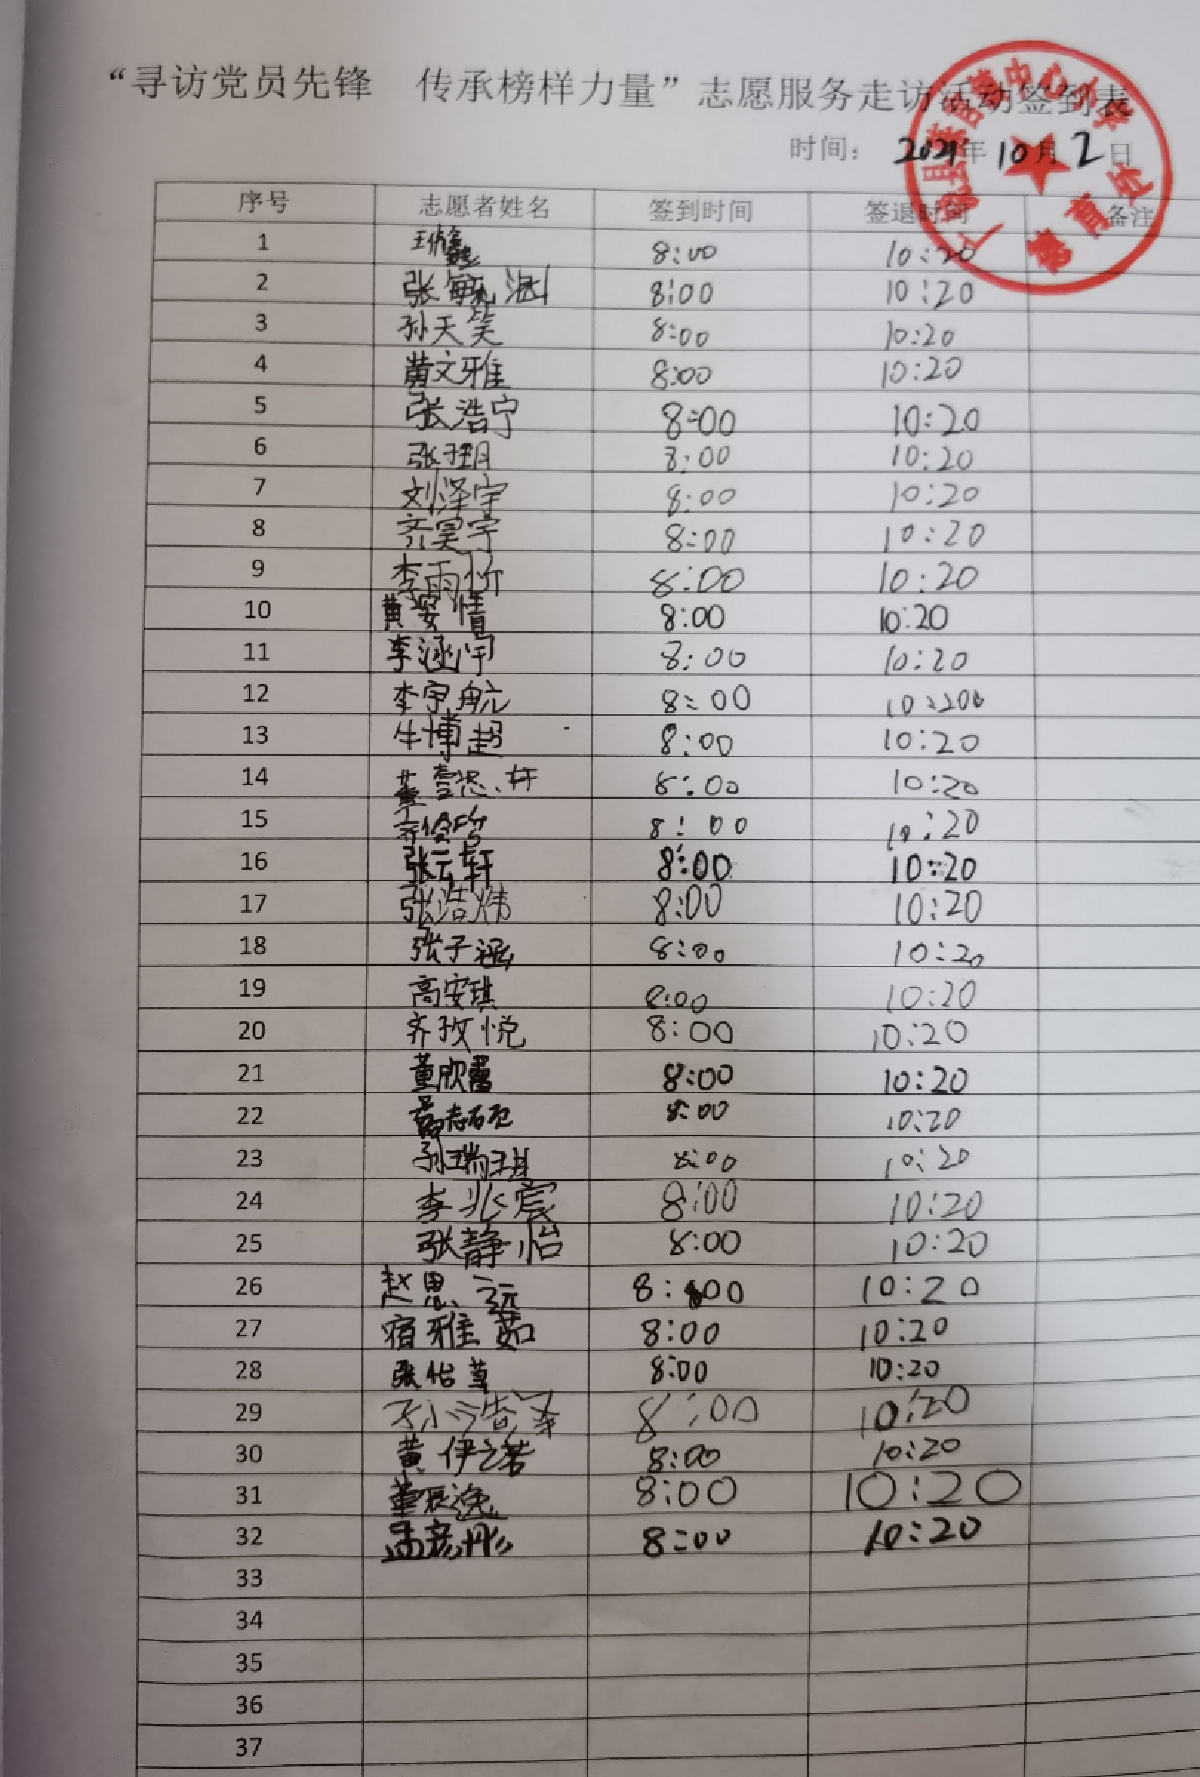 “寻访党员先锋　传承榜样力量”志愿服务走访活动签到表
时间：2021年10月2日
序号 志愿者姓名 签到时间 签退时间 备注
1 8:00 10:20
2 张 涵 8:00 10:20
3 孙天笑 8:00 10:20
4 黄文雅 8:00 10:20
5 张浩宁 8:00 10:20
6 张玥 8:00 10:20
7 刘泽宇 8:00 10:20
8 齐昊宇 8:00 10:20
9 李雨忻 8:00 10:20
10 黄姿情 8:00 10:20
11 李涵宇 8:00 10:20
12 李宇航 8:00 10:20
13 牛博超 8:00 10:20
14 董 轩 8:00 10:20
15 齐 8:00 10:20
16 张云轩 8:00 10:20
17 张浩炜 8:00 10:20
18 张子涵 8:00 10:20
19 高安琪 8:00 10:20
20 齐孜悦 8:00 10:20
21 董欣 8:00 10:20
22 8:00 10:20
23 孙瑞琪 8:00 10:20
24 李兆宸 8:00 10:20
25 张静怡 8:00 10:20
26 赵思远 8:00 10:20
27 宿雅茹 8:00 10:20
28 张怡 8:00 10:20
29 孙浩泽 8:00 10:20
30 黄伊诺 8:00 10:20
31 董辰逸 8:00 10:20
32 孟彦彤 8:00 10:20
33
34
35
36
37